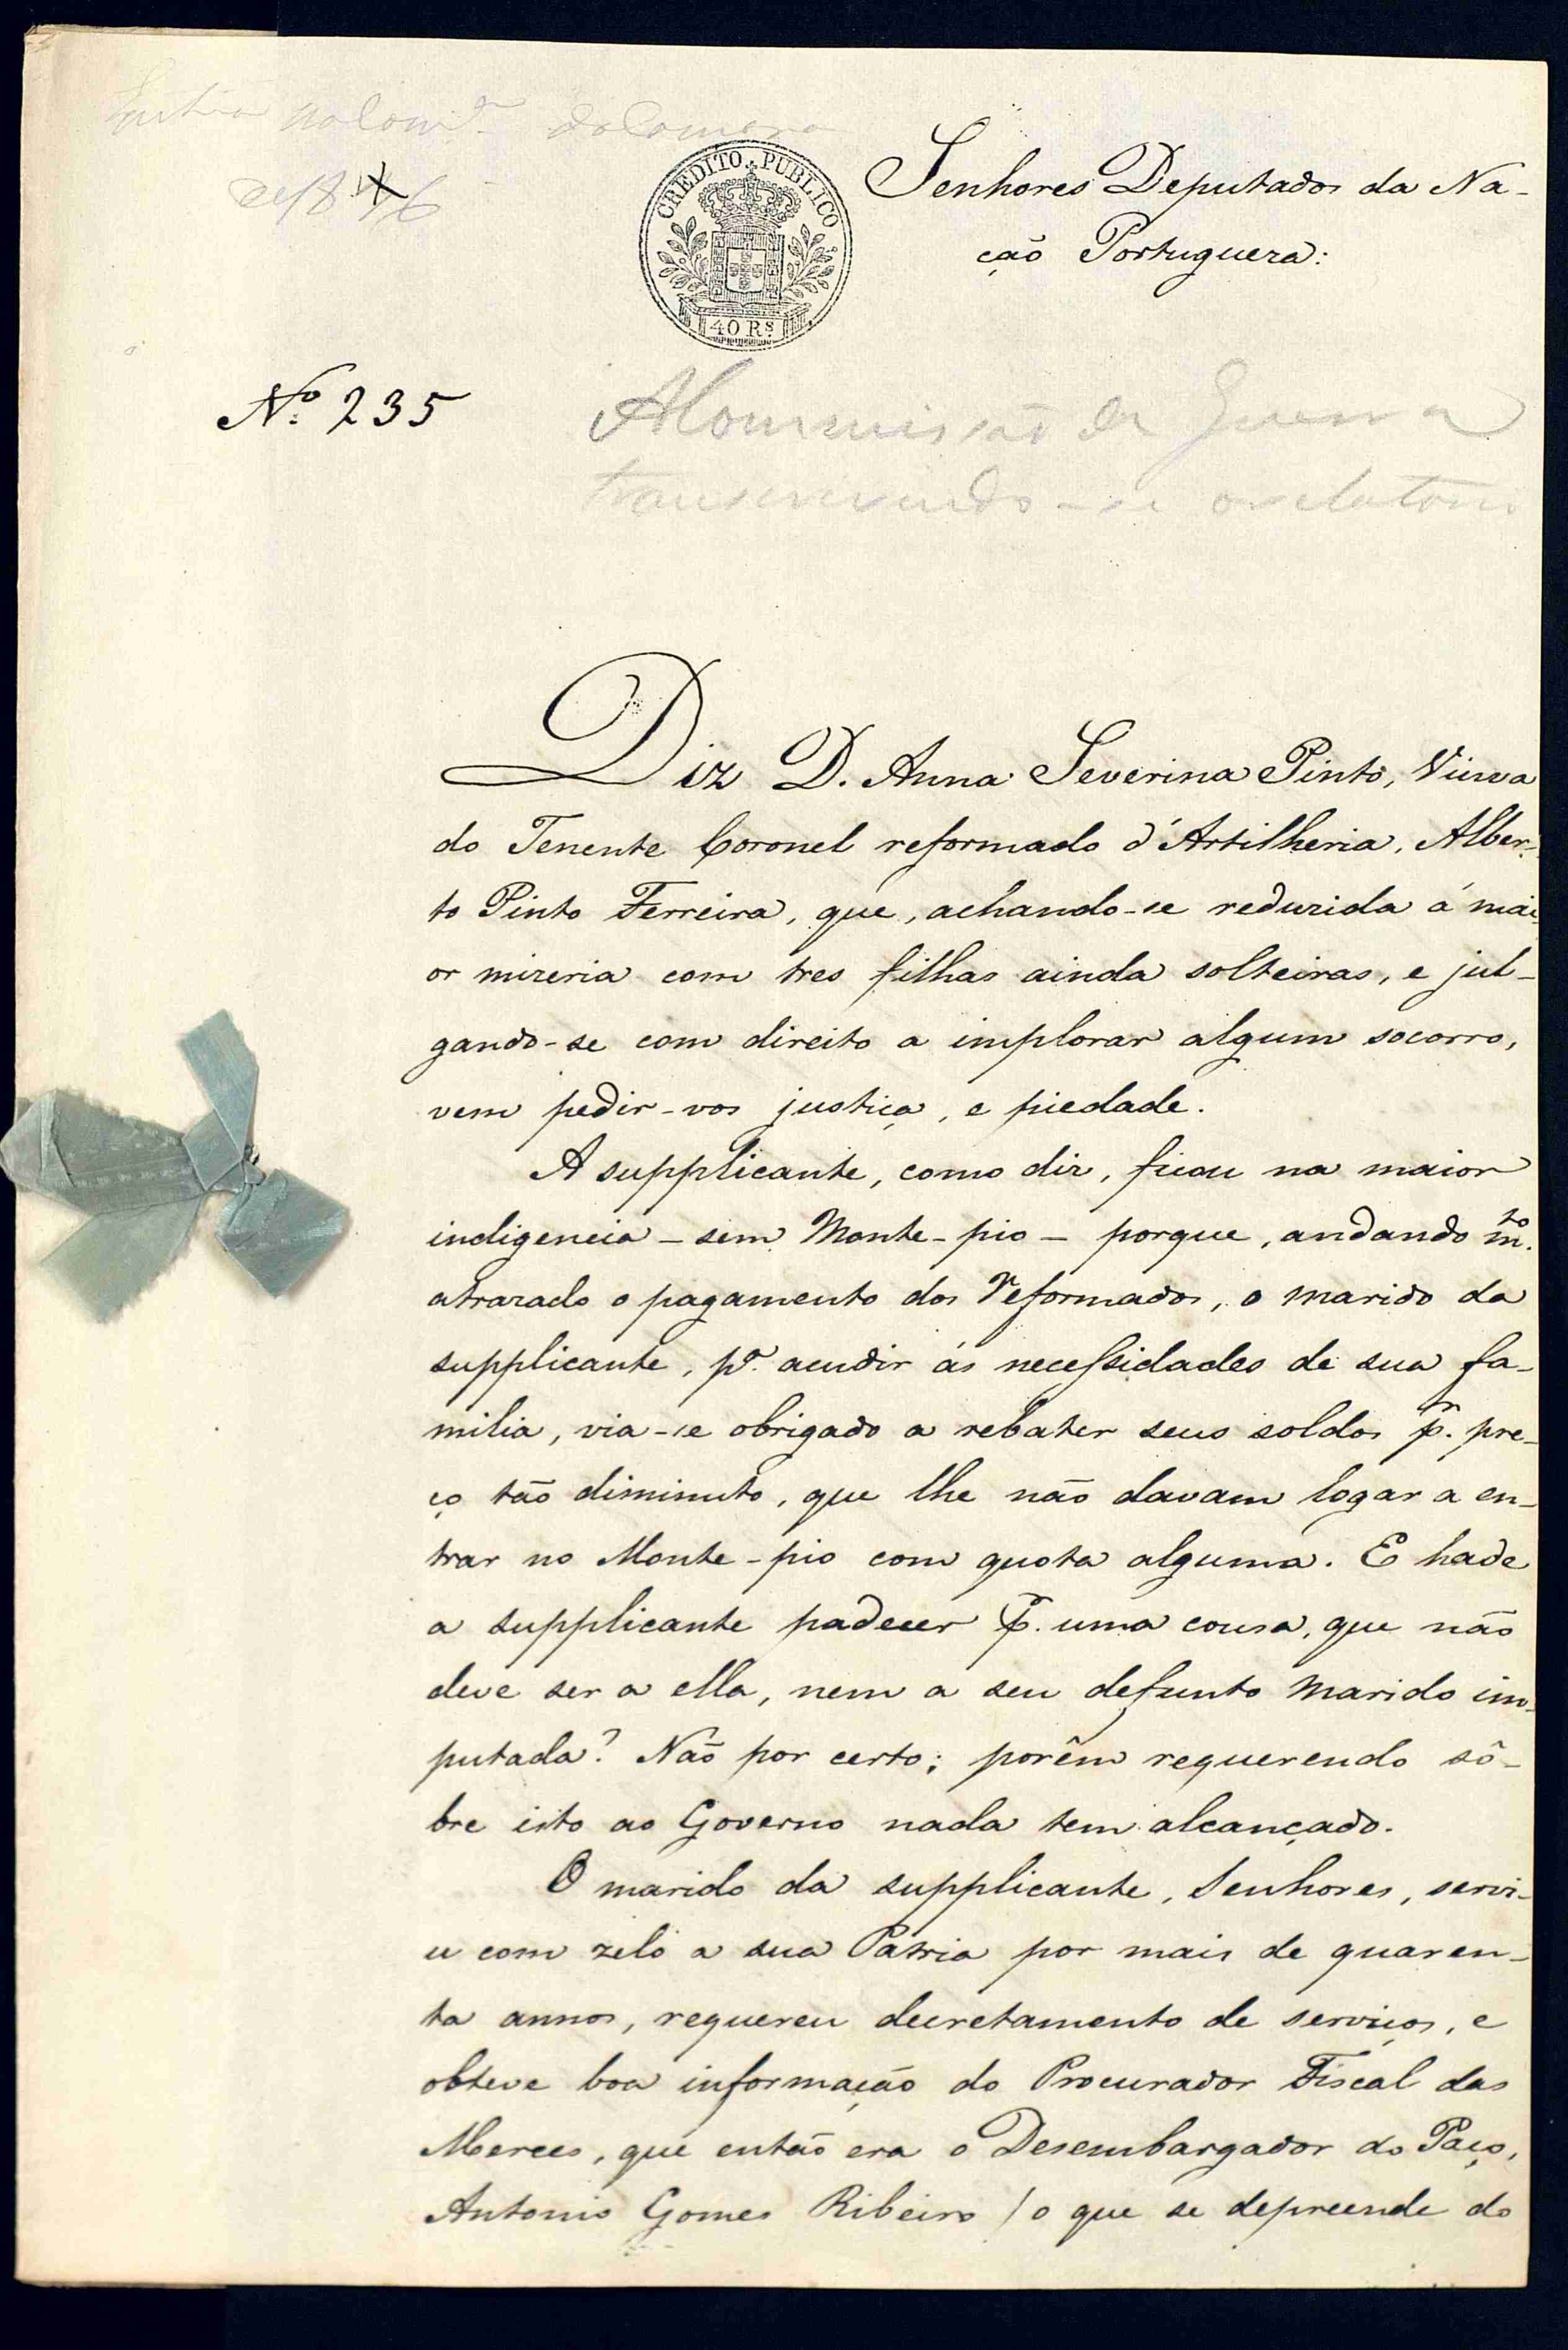 Senhores Deputados da Na-
ção Portugueza:
CREDITO PUBLICO
40 Rs
Nº 235
A Commissão de Guerra
Diz D. Anna Severina Pinto, Viuva
do Tenente Coronel reformado d'Artilheria, Alber-
to Pinto Ferreira, que, achando-se reduzida á mai-
or mizeria com tres filhas ainda solteiras, e jul-
gando-se com direito a implorar algum socorro,
vem pedir-vos justiça, e piedade.
A supplicante, como diz, ficou na maior
indigencia - sem Monte-pio - porque, andando m.to
atrazado o pagamento dos reformados, o marido da
supplicante, p.a acudir ás necessidades de sua fa-
milia, via-se obrigado a rebater seus soldos p.r pre-
ço tão diminuto, que lhe não davam logar a en-
trar no Monte-pio com quota alguma. E hade
a supplicante padecer p.r uma cousa, que não
deve ser a ella, nem a seu defunto marido im-
putada? Não por certo; porêm requerendo sô-
bre isto ao Governo nada tem alcançado.
O marido da supplicante, Senhores, servi-
u com zelo a sua Patria por mais de quaren-
ta annos, requereu decretamento de serviços, e
obteve boa informação do Procurador Fiscal das
Merces, que então era o Desembargador do Paço,
Antonio Gomes Ribeiro / o que se depreende do